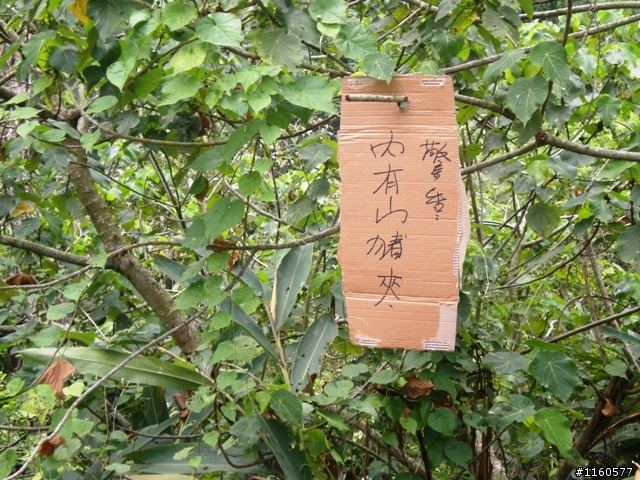 警告:
內有山豬夾、
#1160577